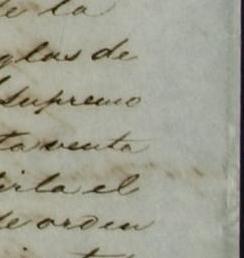 de la
glas de
Supremo
ta venta
irla el
de orden